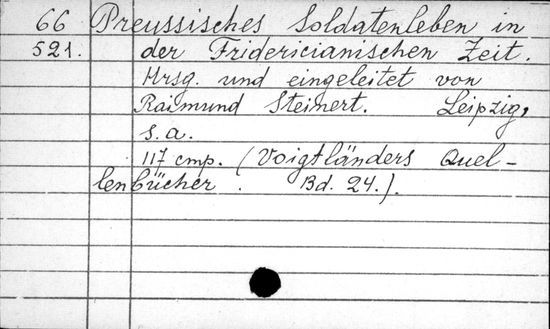 66 Preussisches Soldatenleben in
521. der Fridericianischen Zeit.
Hrsg. und eingeleitet von
Raimund Steinert. Leipzig,
s.a.
117 стр. (Voigtländers Quel-
lenbücher. Bd. 24.).